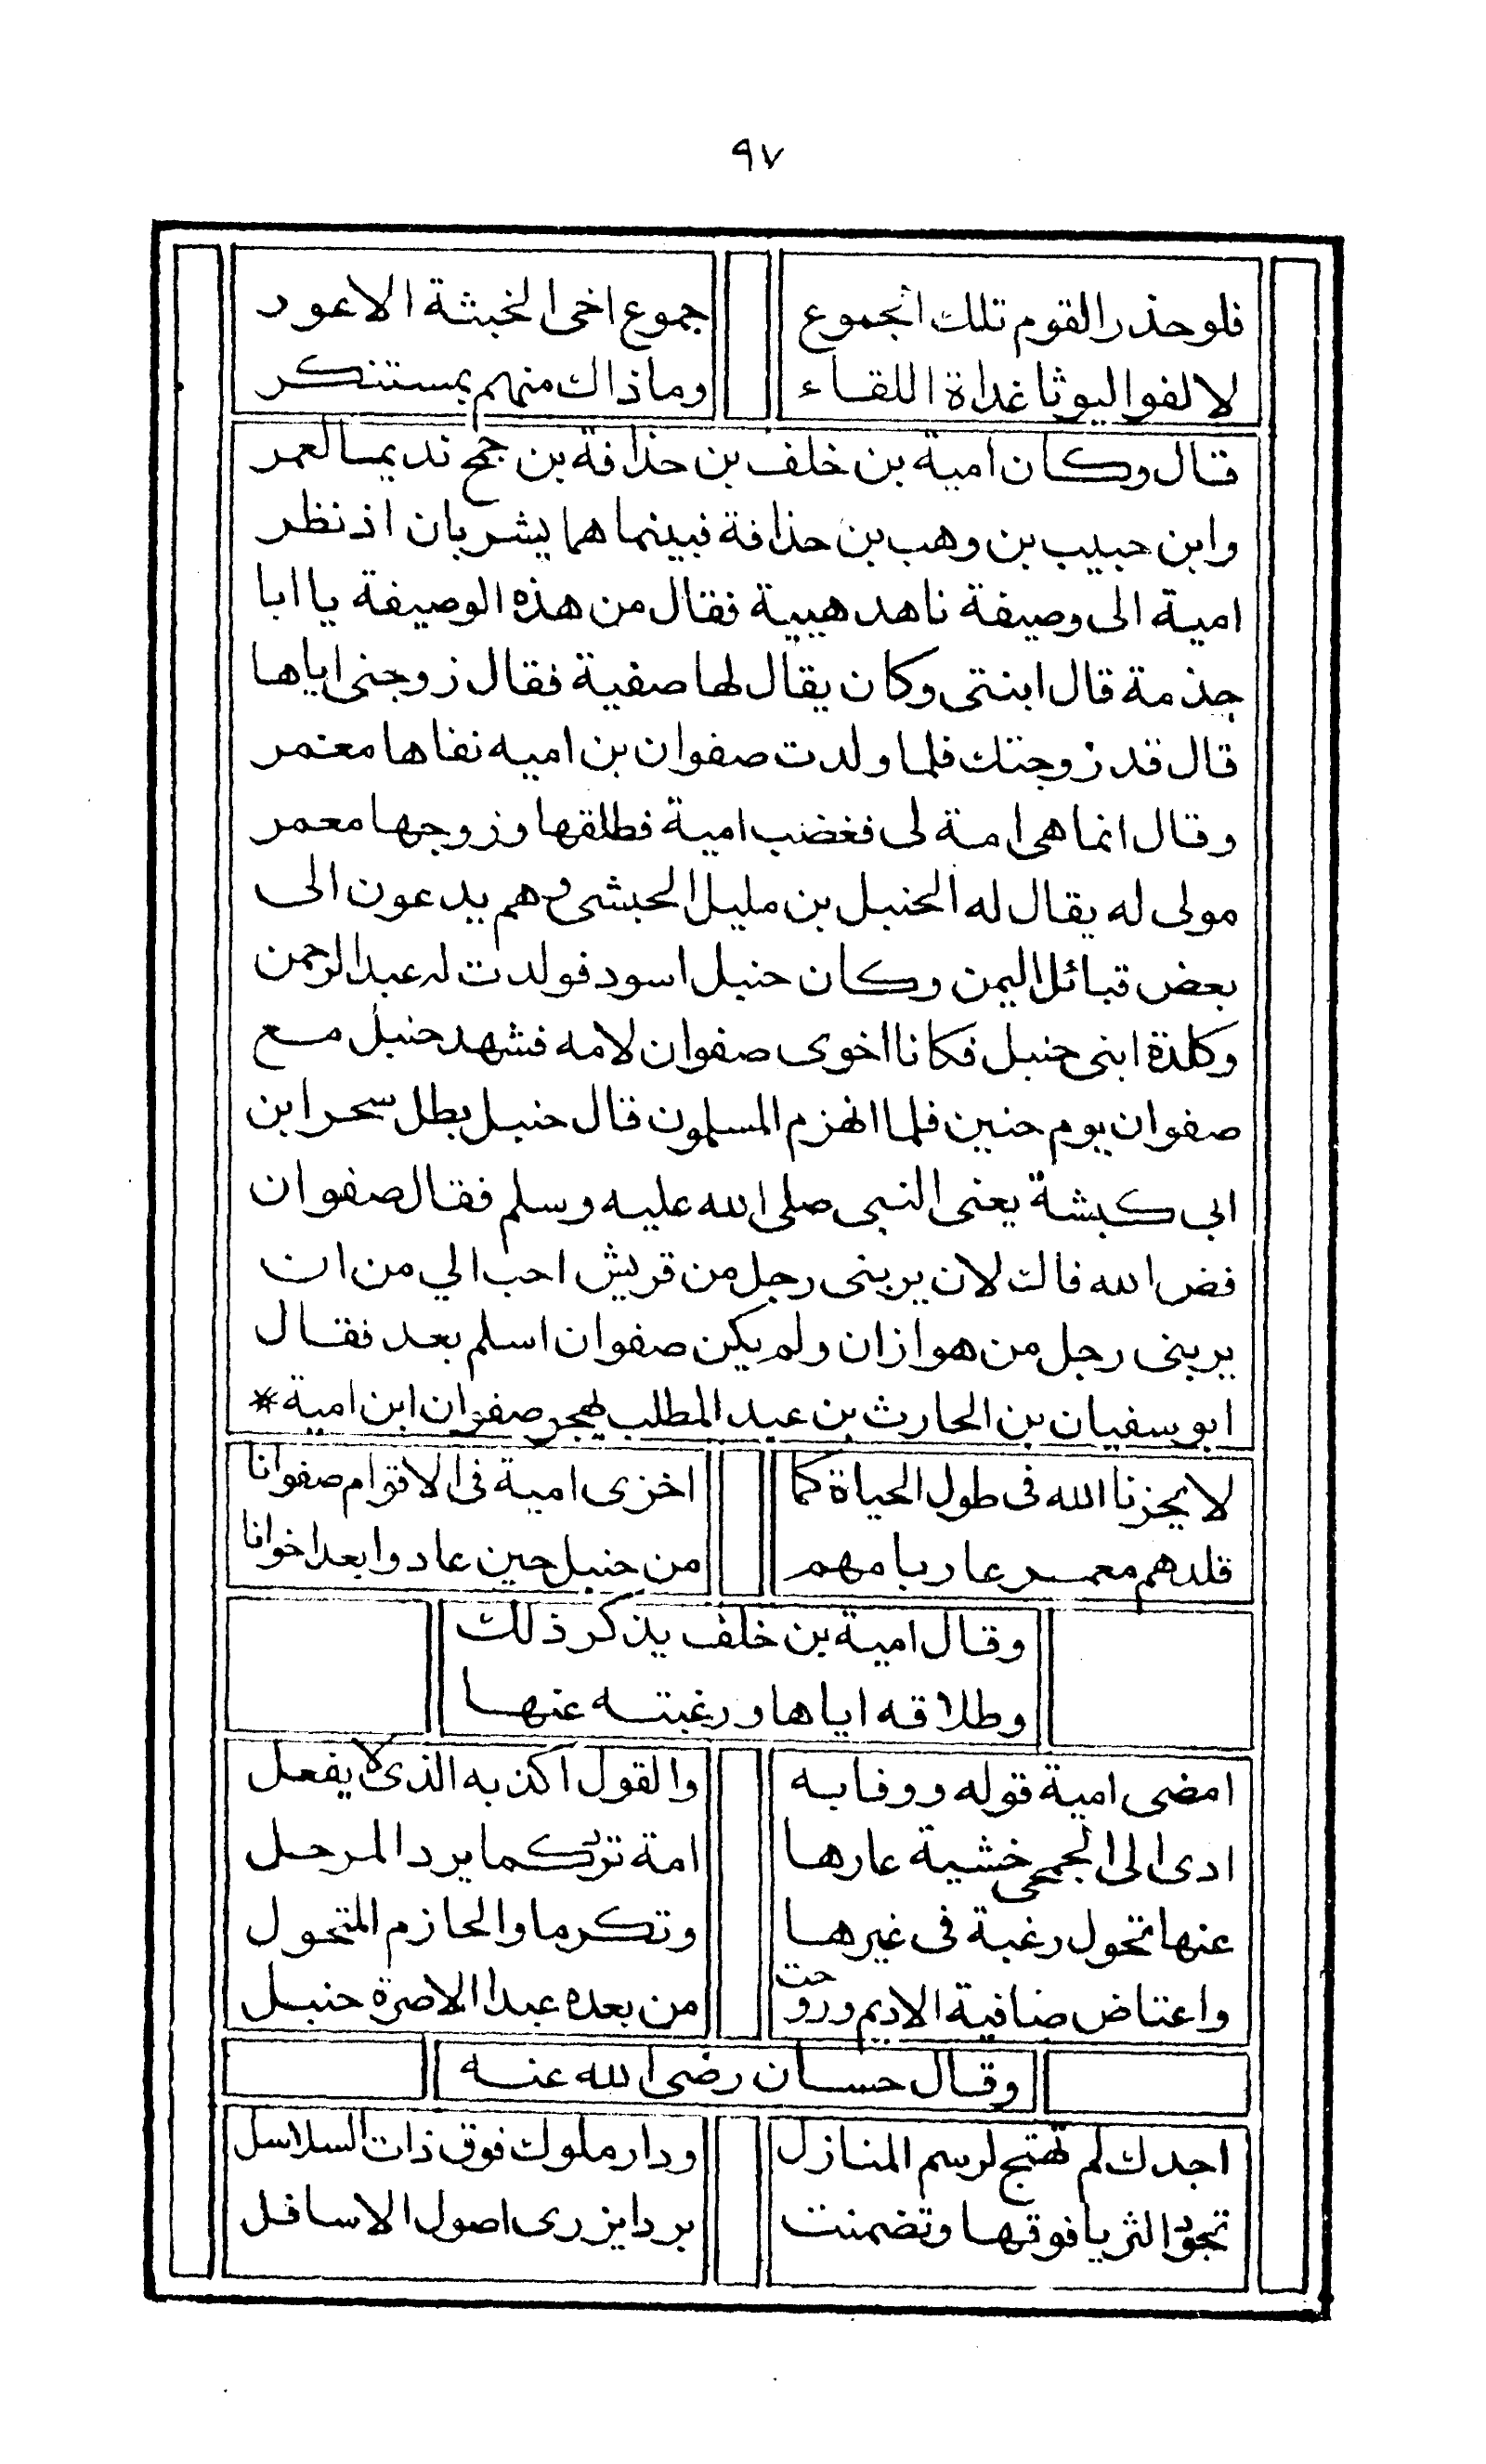 ٩٧
فلو حذر القوم تلك الجموع جموع اخى الخبثة الاعود
لالفوا ليوثا غداة اللقاء وما ذاك منهم بمستنكر
قال وكان امية بن خلف بن حذافة بن جمح نديما لعمر
وابن حبيب بن وهب بن حذافة فبينما هما يشربان اذ نظر
امية الى وصيفة ناهد هيبة فقال من هذه الوصيفة يا ابا
جذمة قال ابنتى وكان يقال لها صفية فقال زوجنى اياها
قال قد زوجتك فلما ولدت صفوان بن اميه نفاها معتمر
وقال انما هى امة لى فغضب امية فطلقها وزوجها معمر
مولى له يقال له الحنبل بن مليل الحبشى وهم يدعون الى
بعض قبائل اليمن وكان حنبل اسود فولدت له عبد الرحمن
وكلدة ابنى حنبل فكانا اخوى صفوان لامه فشهد حنبل مع
صفوان يوم حنين فلما انهزم المسلمون قال حنبل بطل سحر ابن
ابى كبشة يعنى النبى صلى الله عليه وسلم فقال صفوان
فض الله فاك لان يربنى رجل من قريش احب الي من ان
يربنى رجل من هوازان ولم يكن صفوان اسلم بعد فقال
ابو سفيان بن الحارث بن عبد المطلب يهجو صفوان ابن امية *
لا يحزنا الله فى طول الحياة كما اخزى امية فى الاقوام صفوانا
قلدهم معمر عارا بامهم من حنبل حين عادوا بعد اخوانا
وقال امية بن خلف يذكر ذلك
وطلاقه اياها ورغبته عنها
امضى امية قوله ووفا به والقول اكذبه الذى لا يفعل
ادى الى الجمحى خشية عارها امة ترد كما يرد المرحل
عنها تحول رغبة فى غيرها وتكرما والحازم المتحول
واعتاض ضافية الاديم وزوجت من بعده عبدا لاصرة حنبل
وقال حسان رضى الله عنه
اجدك لم تهتج لرسم المنازل ودار ملوك فوق ذات السلاسل
تجود الثريا فوقها وتضمنت بردا يزرى اصول الاسافل